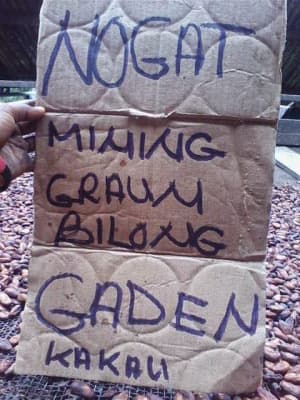 NOGAT
MINING
GRAUN
BILONG
GADEN
KAKAU